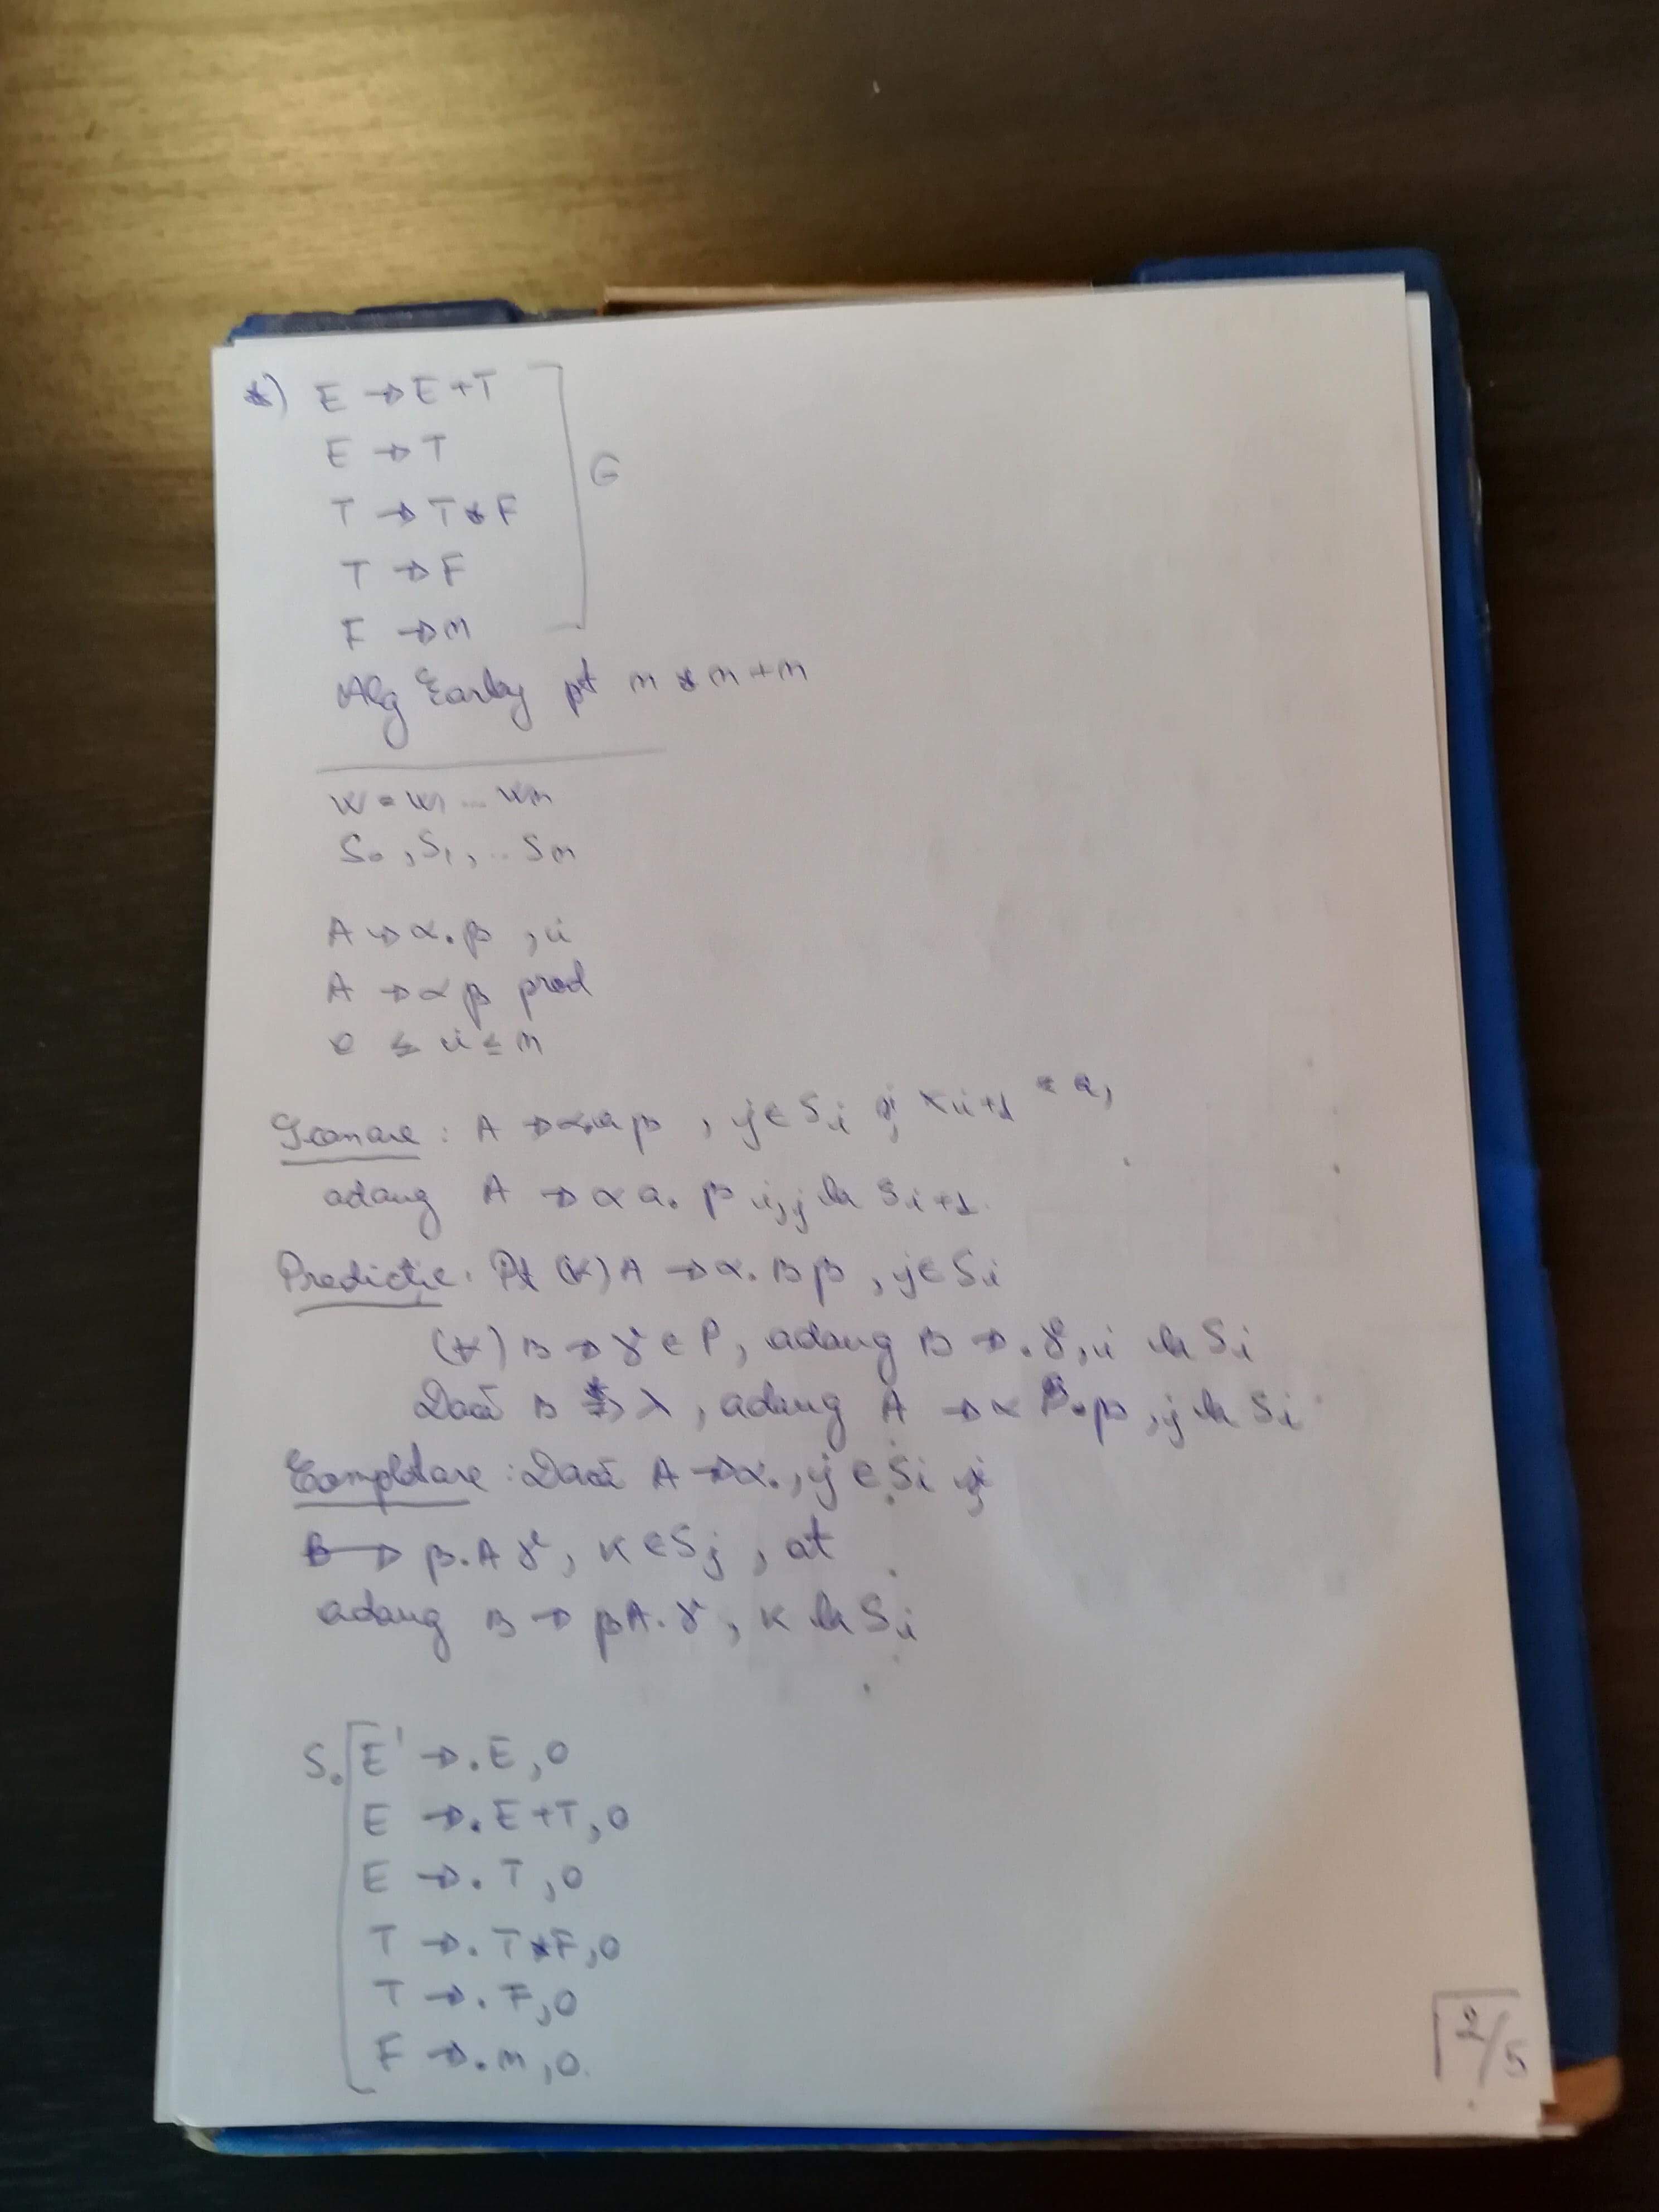 *) E → E+T
E → T
T → T*F
T → F
F → n
G
Alg Earley pt n*n+n
W = W1 ... Wn
S0, S1, ... Sn
A → α.β, i
A → αβ prod
0 ≤ i ≤ n
Scanare: A → α.aβ, j ∈ Si și xi+1 = a,
adaug A → αa.β, j la Si+1.
Predicție: Pt (∀) A → α.Bβ, j ∈ Si
(∀) B → γ ∈ P, adaug B → .γ, i la Si
Dacă B *⇒ λ, adaug A → αB.β, j la Si
Completare: Dacă A → α., j ∈ Si și
B → β.Aγ, K ∈ Sj, at
adaug B → βA.γ, K la Si
S0 E' → .E, 0
E → .E+T, 0
E → .T, 0
T → .T*F, 0
T → .F, 0
F → .n, 0.
2/5